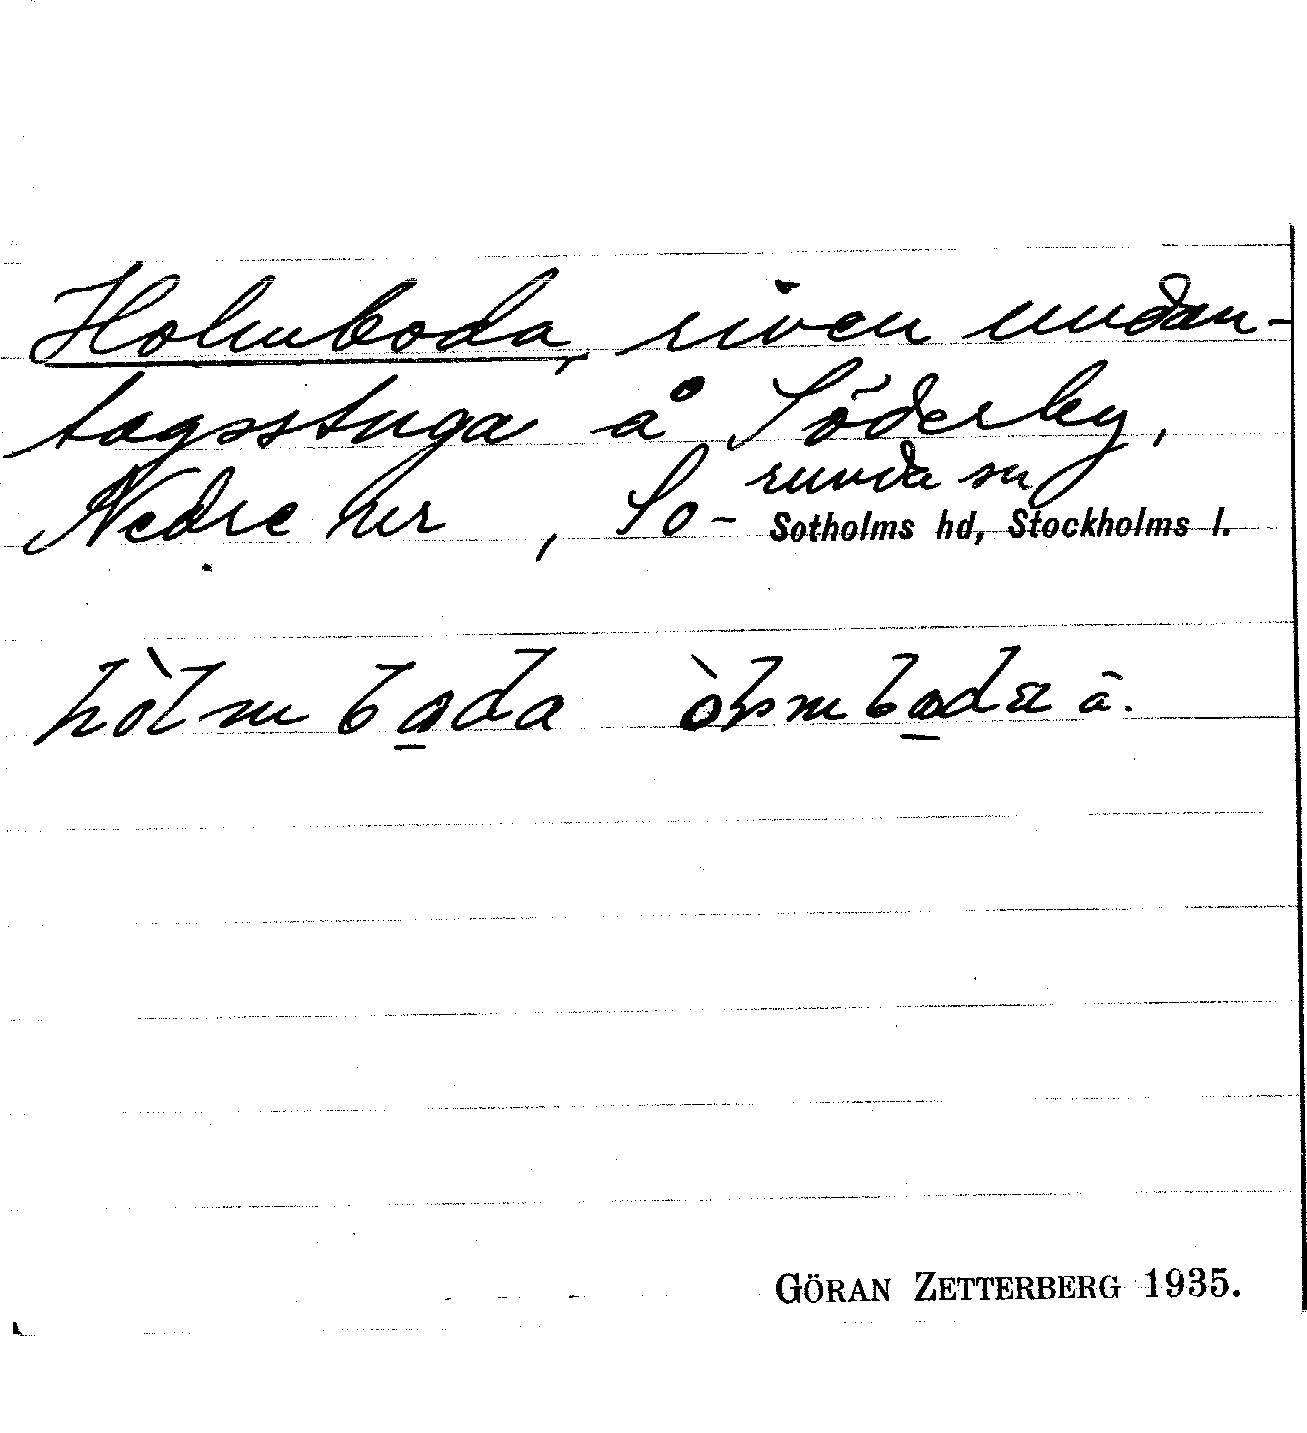 Holmboda, riven undan-
tagsstuga å Söderby,
Nedre her , So-
runda sn
Sotholms hd, Stockholms l.
hòlmboda òlsmbodæ ä.
GÖRAN ZETTERBERG 1935.